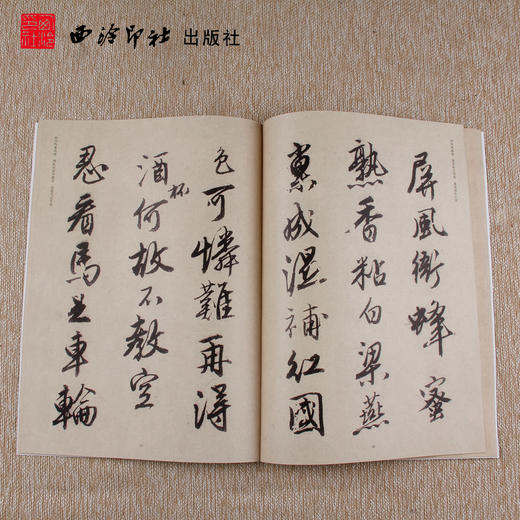 西泠印社 出版社
屏風衙蜂蜜
熟香粘白梁燕
巢成濕補紅國
色可憐難再得
酒杯何故不教空
忍看馬足車輪